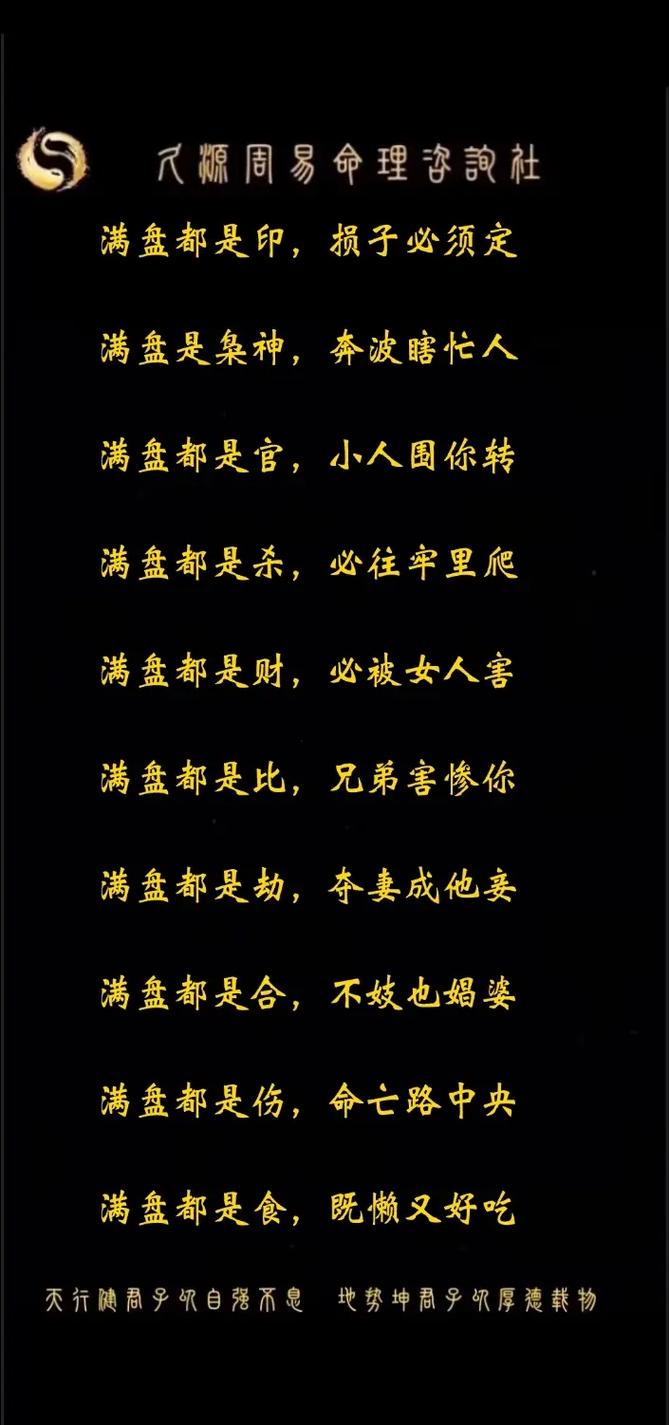 久源周易命理咨詢社
满盘都是印，损子必须定
满盘是枭神，奔波瞎忙人
满盘都是官，小人围你转
满盘都是杀，必往牢里爬
满盘都是财，必被女人害
满盘都是比，兄弟害惨你
满盘都是劫，夺妻成他妾
满盘都是合，不妓也娼婆
满盘都是伤，命亡路中央
满盘都是食，既懒又好吃
天行健君子以自强不息 地势坤君子以厚德载物